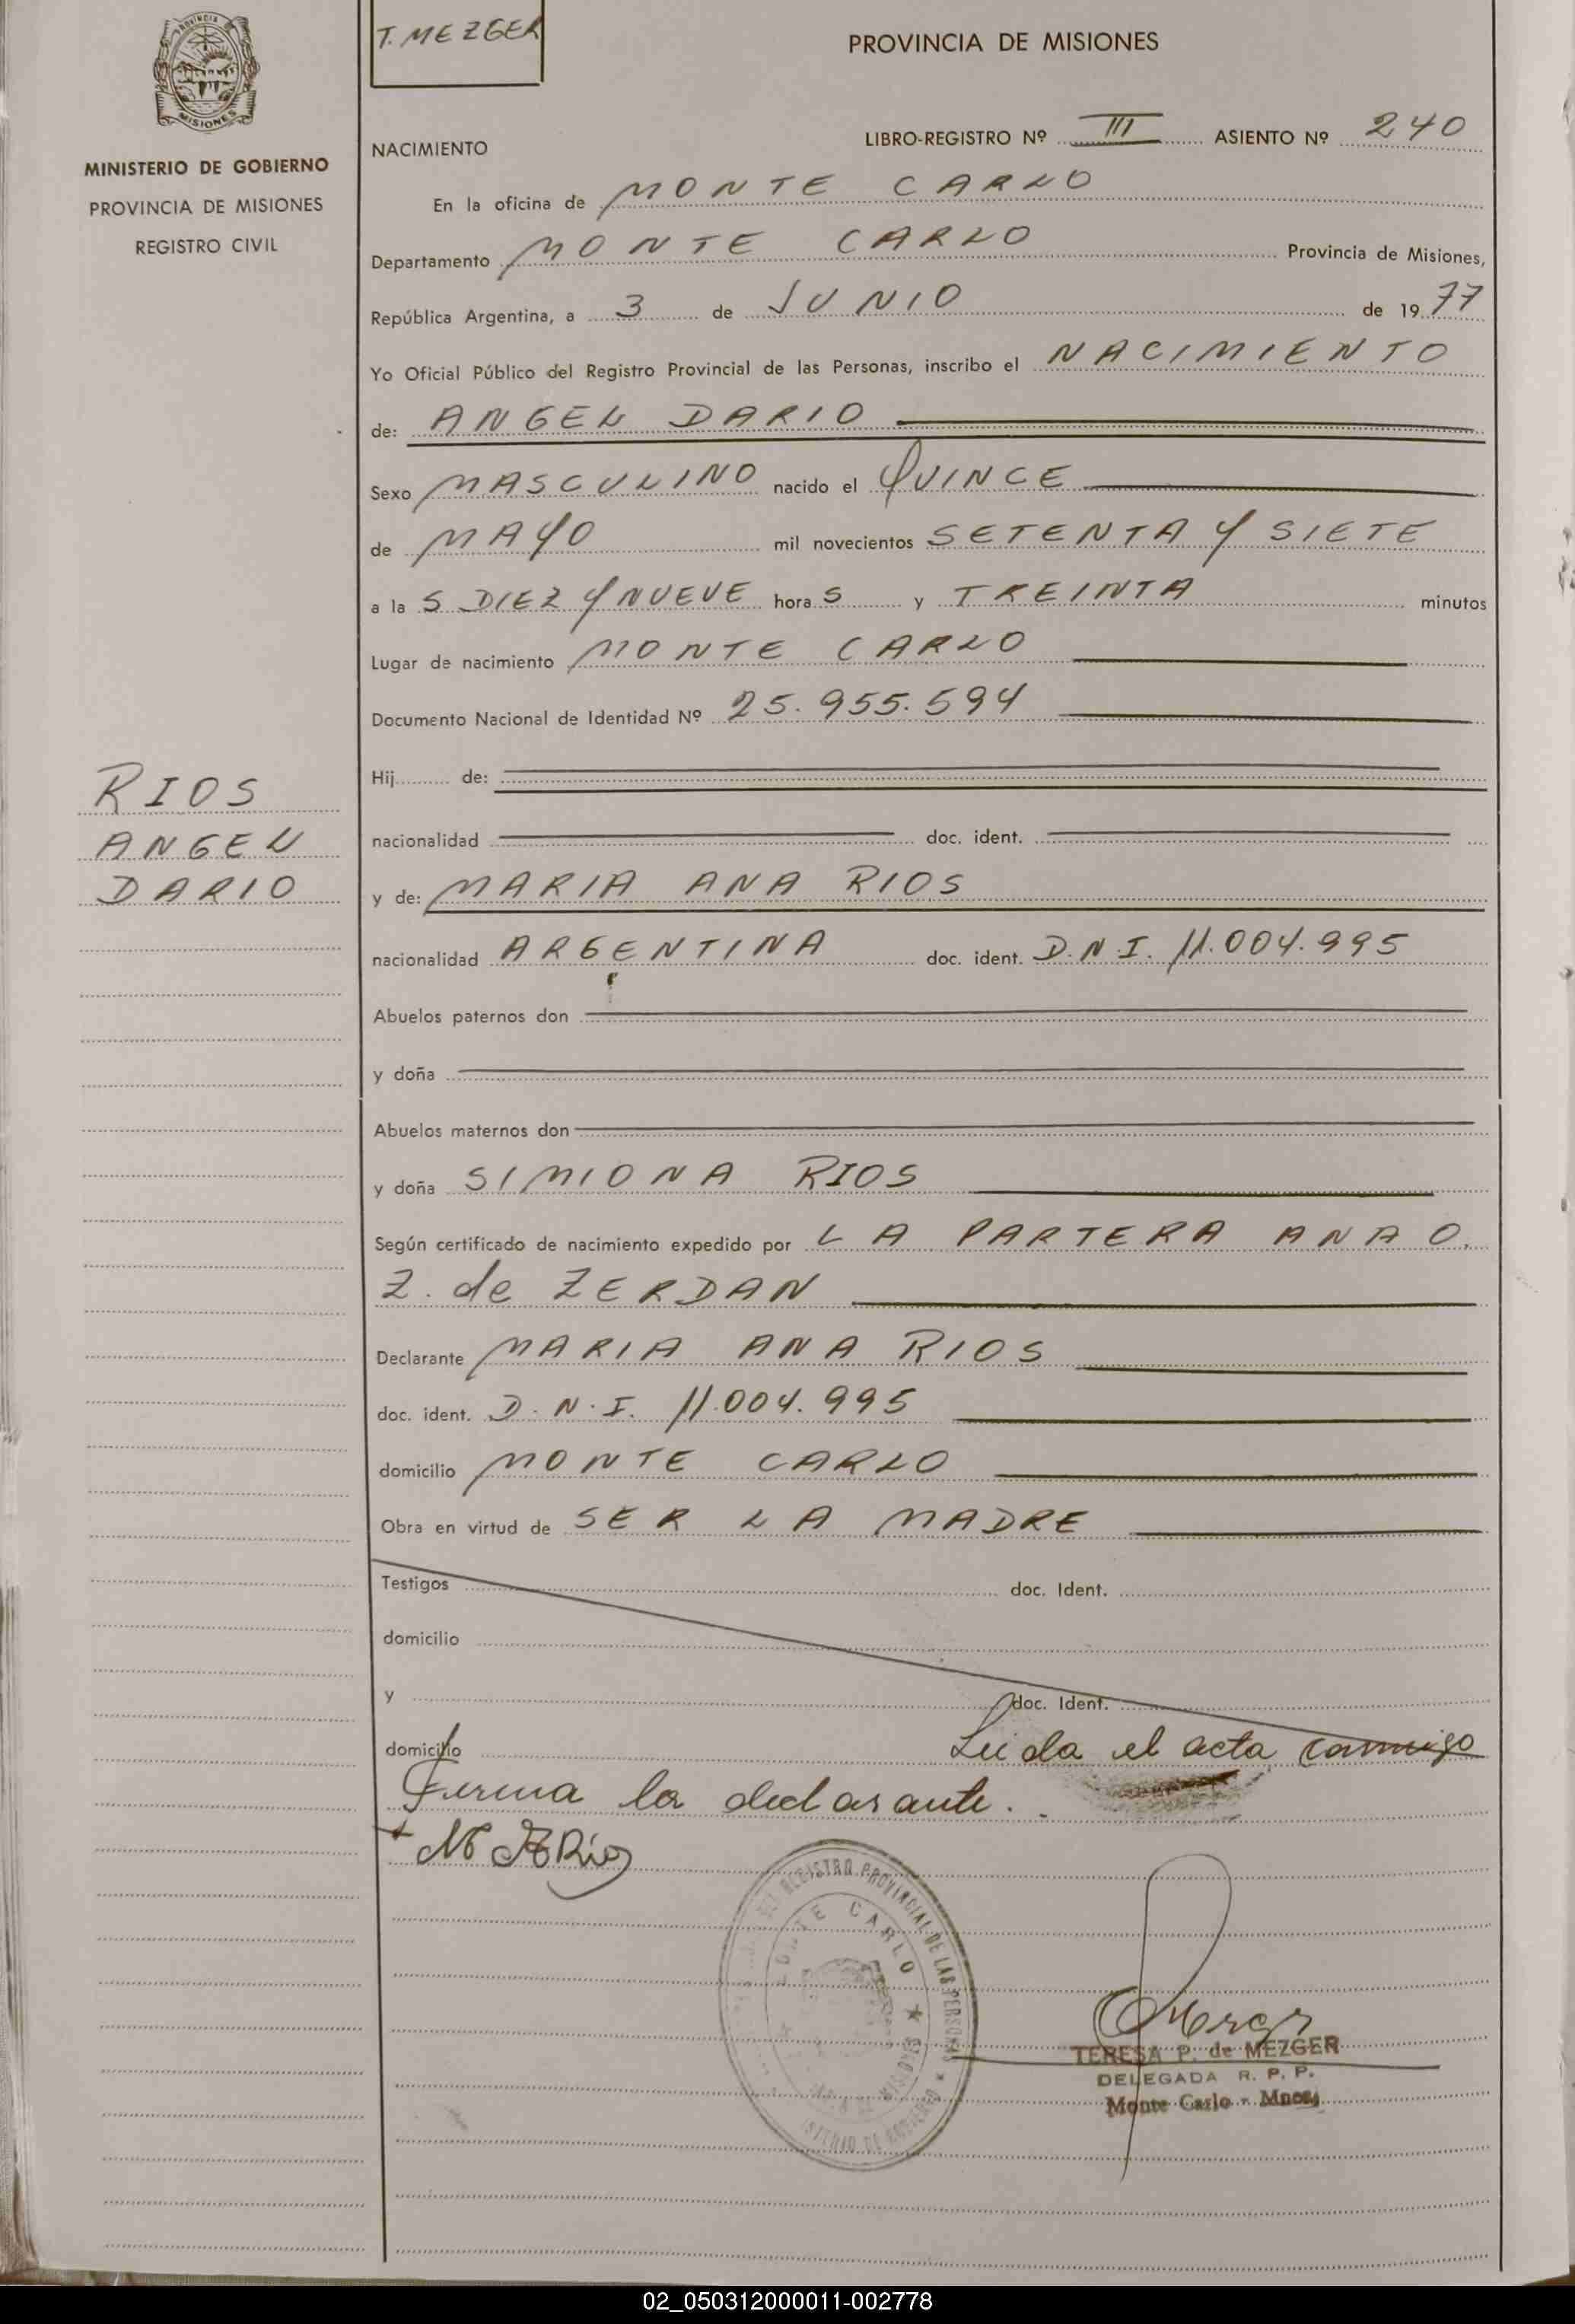 T. MEZGER
PROVINCIA DE MISIONES
MISIONES
MINISTERIO DE GOBIERNO
PROVINCIA DE MISIONES
REGISTRO CIVIL
NACIMIENTO
LIBRO-REGISTRO Nº III ASIENTO Nº 240
En la oficina de MONTE CARLO
Departamento MONTE CARLO Provincia de Misiones,
República Argentina, a 3 de JUNIO de 1977
Yo Oficial Público del Registro Provincial de las Personas, inscribo el NACIMIENTO
de: ANGEL DARIO
Sexo MASCULINO nacido el QUINCE
de MAYO mil novecientos SETENTA Y SIETE
a la S DIEZ Y NUEVE hora S y TREINTA minutos
Lugar de nacimiento MONTE CARLO
Documento Nacional de Identidad Nº 25.955.594
RIOS
ANGEL
DARIO
Hij de:
nacionalidad doc. ident.
y de: MARIA ANA RIOS
nacionalidad ARGENTINA doc. ident. D.N.I. 11.004.995
Abuelos paternos don
y doña
Abuelos maternos don
y doña SIMIONA RIOS
Según certificado de nacimiento expedido por LA PARTERA ANA O.
Z. de ZERDAN
Declarante MARIA ANA RIOS
doc. ident. D.N.I. 11.004.995
domicilio MONTE CARLO
Obra en virtud de SER LA MADRE
Testigos doc. Ident.
domicilio
y doc. Ident.
domicilio Leida el acta conmigo
Firma la declarante.
REGISTRO PROVINCIAL DE LAS PERSONAS
MONTE CARLO
TERESA P. de MEZGER
DELEGADA R. P. P.
Monte Carlo - Mnes.
02_050312000011-002778